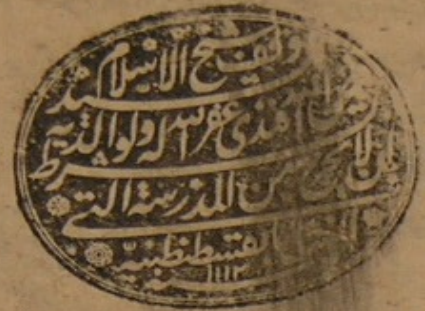 وقف شيخ الاسلام السيد
فيض الله افندى غفر الله له ولوالديه
بشرط ان لا يخرج من المدرسة التى
بقسطنطينية
سنة ١١١٢